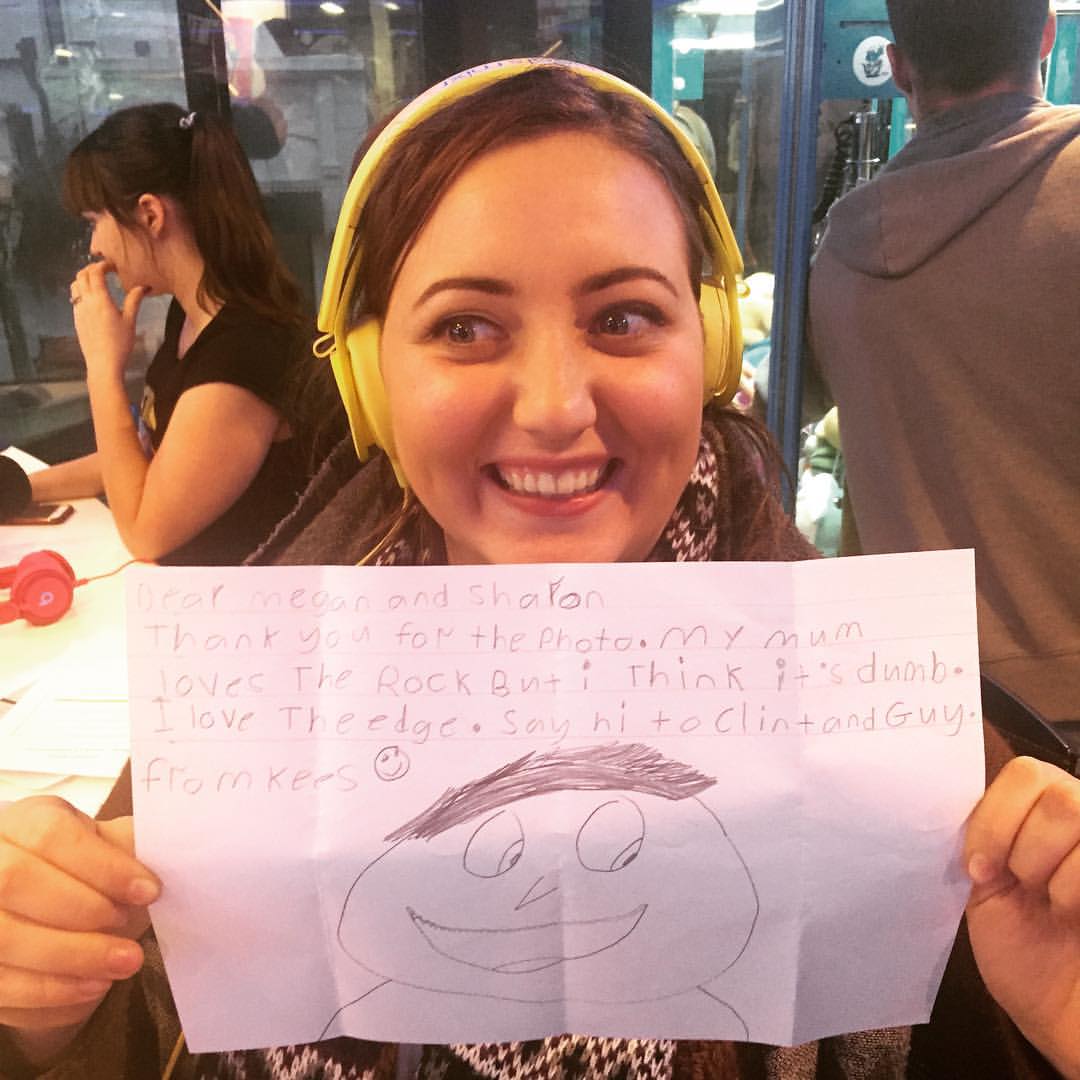 Dear megan and Sharon
Thank you for the Photo. My mum
loves The Rock But i Think it's dumb.
I love The edge. Say hi to Clint and Guy.
from Kees